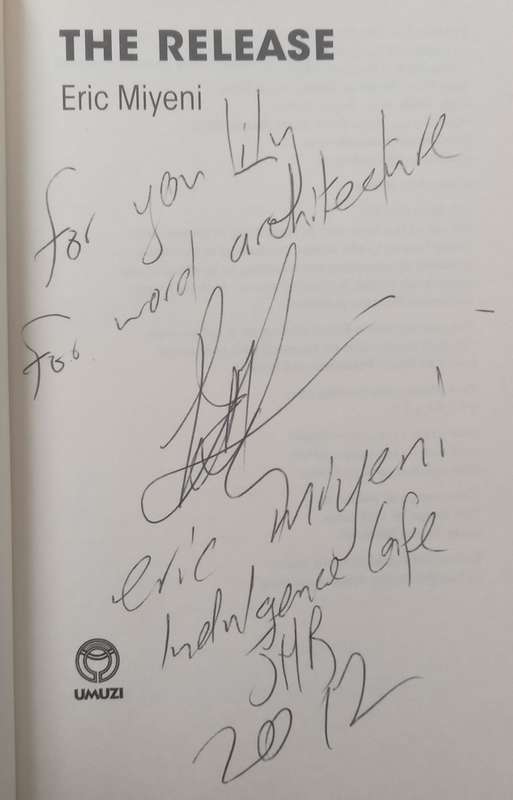 THE RELEASE
Eric Miyeni
for you Lily
for word architecture
eric miyeni
Indulgence Cafe
JHB
2012
UMUZI